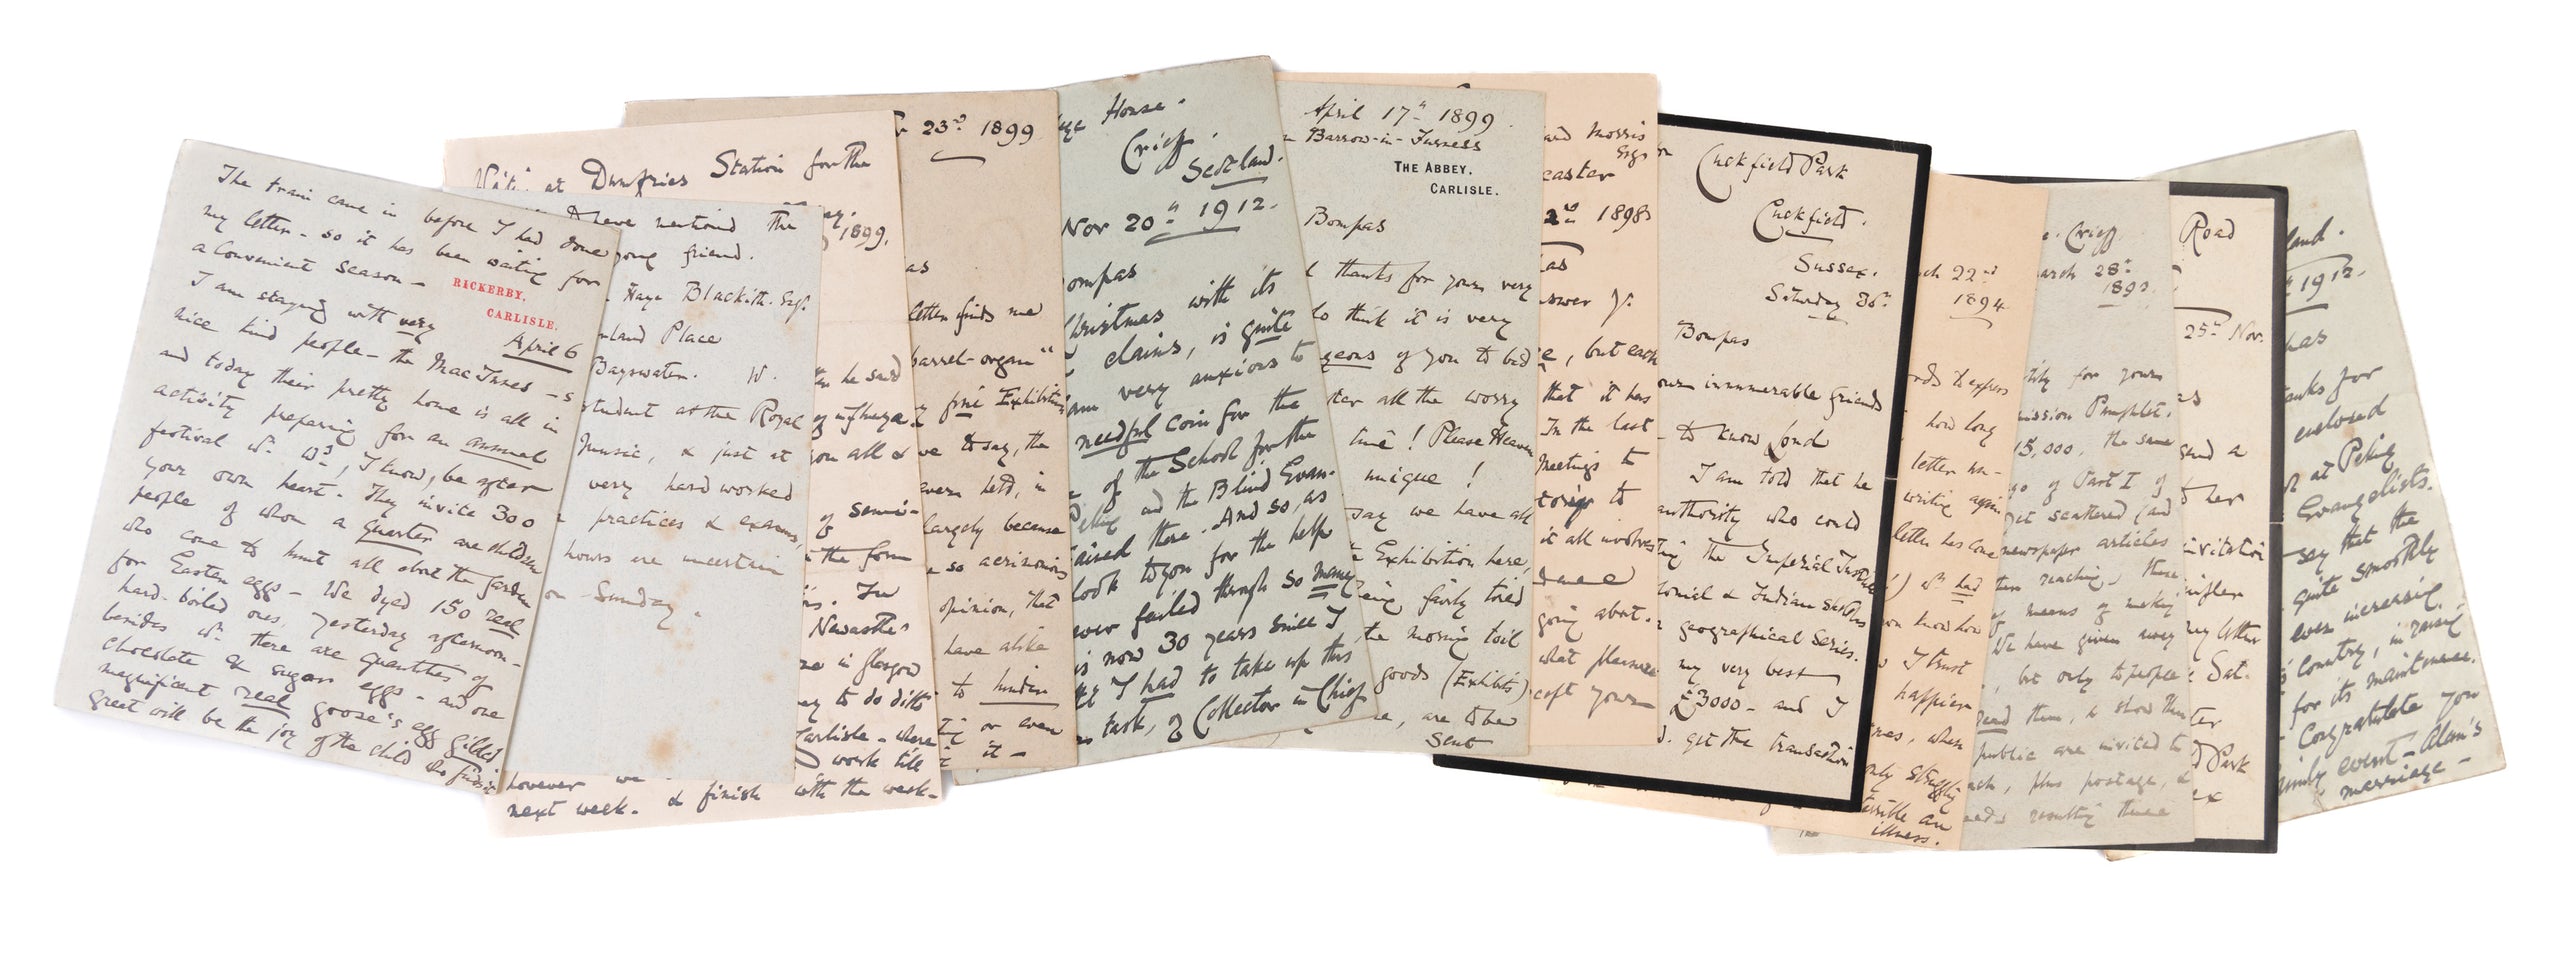 The train came in before I had done
my letter - so it has been waiting for
a convenient season -
RICKERBY,
CARLISLE.
April 6
I am staying with very
nice kind people - the MacInnes - s
and today their pretty home is all in
activity preparing for an annual
festival wh. wd., I know, be after
your own heart. They invite 300
people of whom a quarter are children
who come to hunt all about the garden
for Easter eggs - We dyed 150 real
hard-boiled ones, yesterday afternoon -
besides wh. there are quantities of
chocolate & sugar eggs - and one
magnificent real goose's egg gilded
great will be the joy of the child who finds it
have mentioned the
young friend.
Haye Blackith. Esq.
Place
Bayswater. W.
student at the Royal
Music, & just at
very hard worked
practices & exams,
hours are uncertain
on Sunday.
at Dumfries Station for the
1899.
he said
of influenza
you all &
of semi-
in the form
In
Newcastle
in Glasgow
to do ditto
Carlisle - where
work till
however we
next week. & finish with the week-
23rd 1899
as
letter finds me
barrel-organ"
fine Exhibition
to say, the
ever held, in
largely because
so acrimonious
opinion, that
have alike
to hinder
or even
it -
House.
Crieff.
Scotland.
Nov 20th 1912.
ompas
Christmas with its
claims, is quite
am very anxious to
needful coin for the
of the School for the
Peking and the Blind Evan-
trained there. And so, as
look to you for the help
never failed through so many
is now 30 years since I
I had to take up this
task, of Collector in Chief
April 17th 1899.
Barrow-in-Furness
THE ABBEY,
CARLISLE.
Bompas
thanks for yours very
to think it is very
of you to bid
after all the worry
time! Please Heaven
unique!
say we have all
Exhibition here,
being fairly tired
the morning toil
goods (Exhibits)
are, are to be
sent
Morris
Esq.
caster
2nd 1898
as
answer yr.
, but each
that it has
In the last
Meetings to
to
it all involves
going about.
what pleasure
yours
Cuckfield Park
Cuckfield.
Sussex.
Saturday 26th
Bompas
own innumerable friends
to know Lond
I am told that he
authority who could
the Imperial Institute
Colonial & Indian
geographical Series.
my very best
£3000 - and I
get the transaction
March 22nd
1894
words to express
how long
letter un-
writing again
letter has come
wh had
you know how
I trust
happier
, when
only struggling
terrible an
illness.
Crieff.
March 28th
1893.
for yours
Mission Pamphlet.
15,000, the same
ago of Part I of
get scattered (and
newspaper articles
them reaching these
means of making
We have given away
, but only to people
read them, & show them
public are invited to
each, plus postage, &
resulting these
Road
25th Nov.
as
send a
to her
invitation
my letter
Sat-
ter
Park
ex
land.
1912.
has
thanks for
enclosed
at Peking
Evangelists.
say that the
quite smoothly
ever increasing
country, in raising
for its maintenance.
Congratulate you
family event - Alan's
marriage -